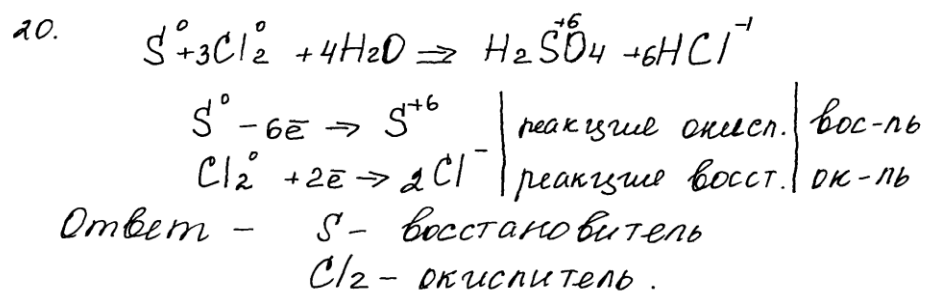 20. S⁰+3Cl₂⁰ +4H₂O ⇒ H₂S⁺⁶O₄ +6HCl⁻¹
S⁰ -6ē ⇒ S⁺⁶ | реакцие окисл. | вос-ль
Cl₂⁰ +2ē → 2Cl⁻ | реакцие восст. | ок-ль
Ответ - S - восстановитель
Cl₂ - окислитель.